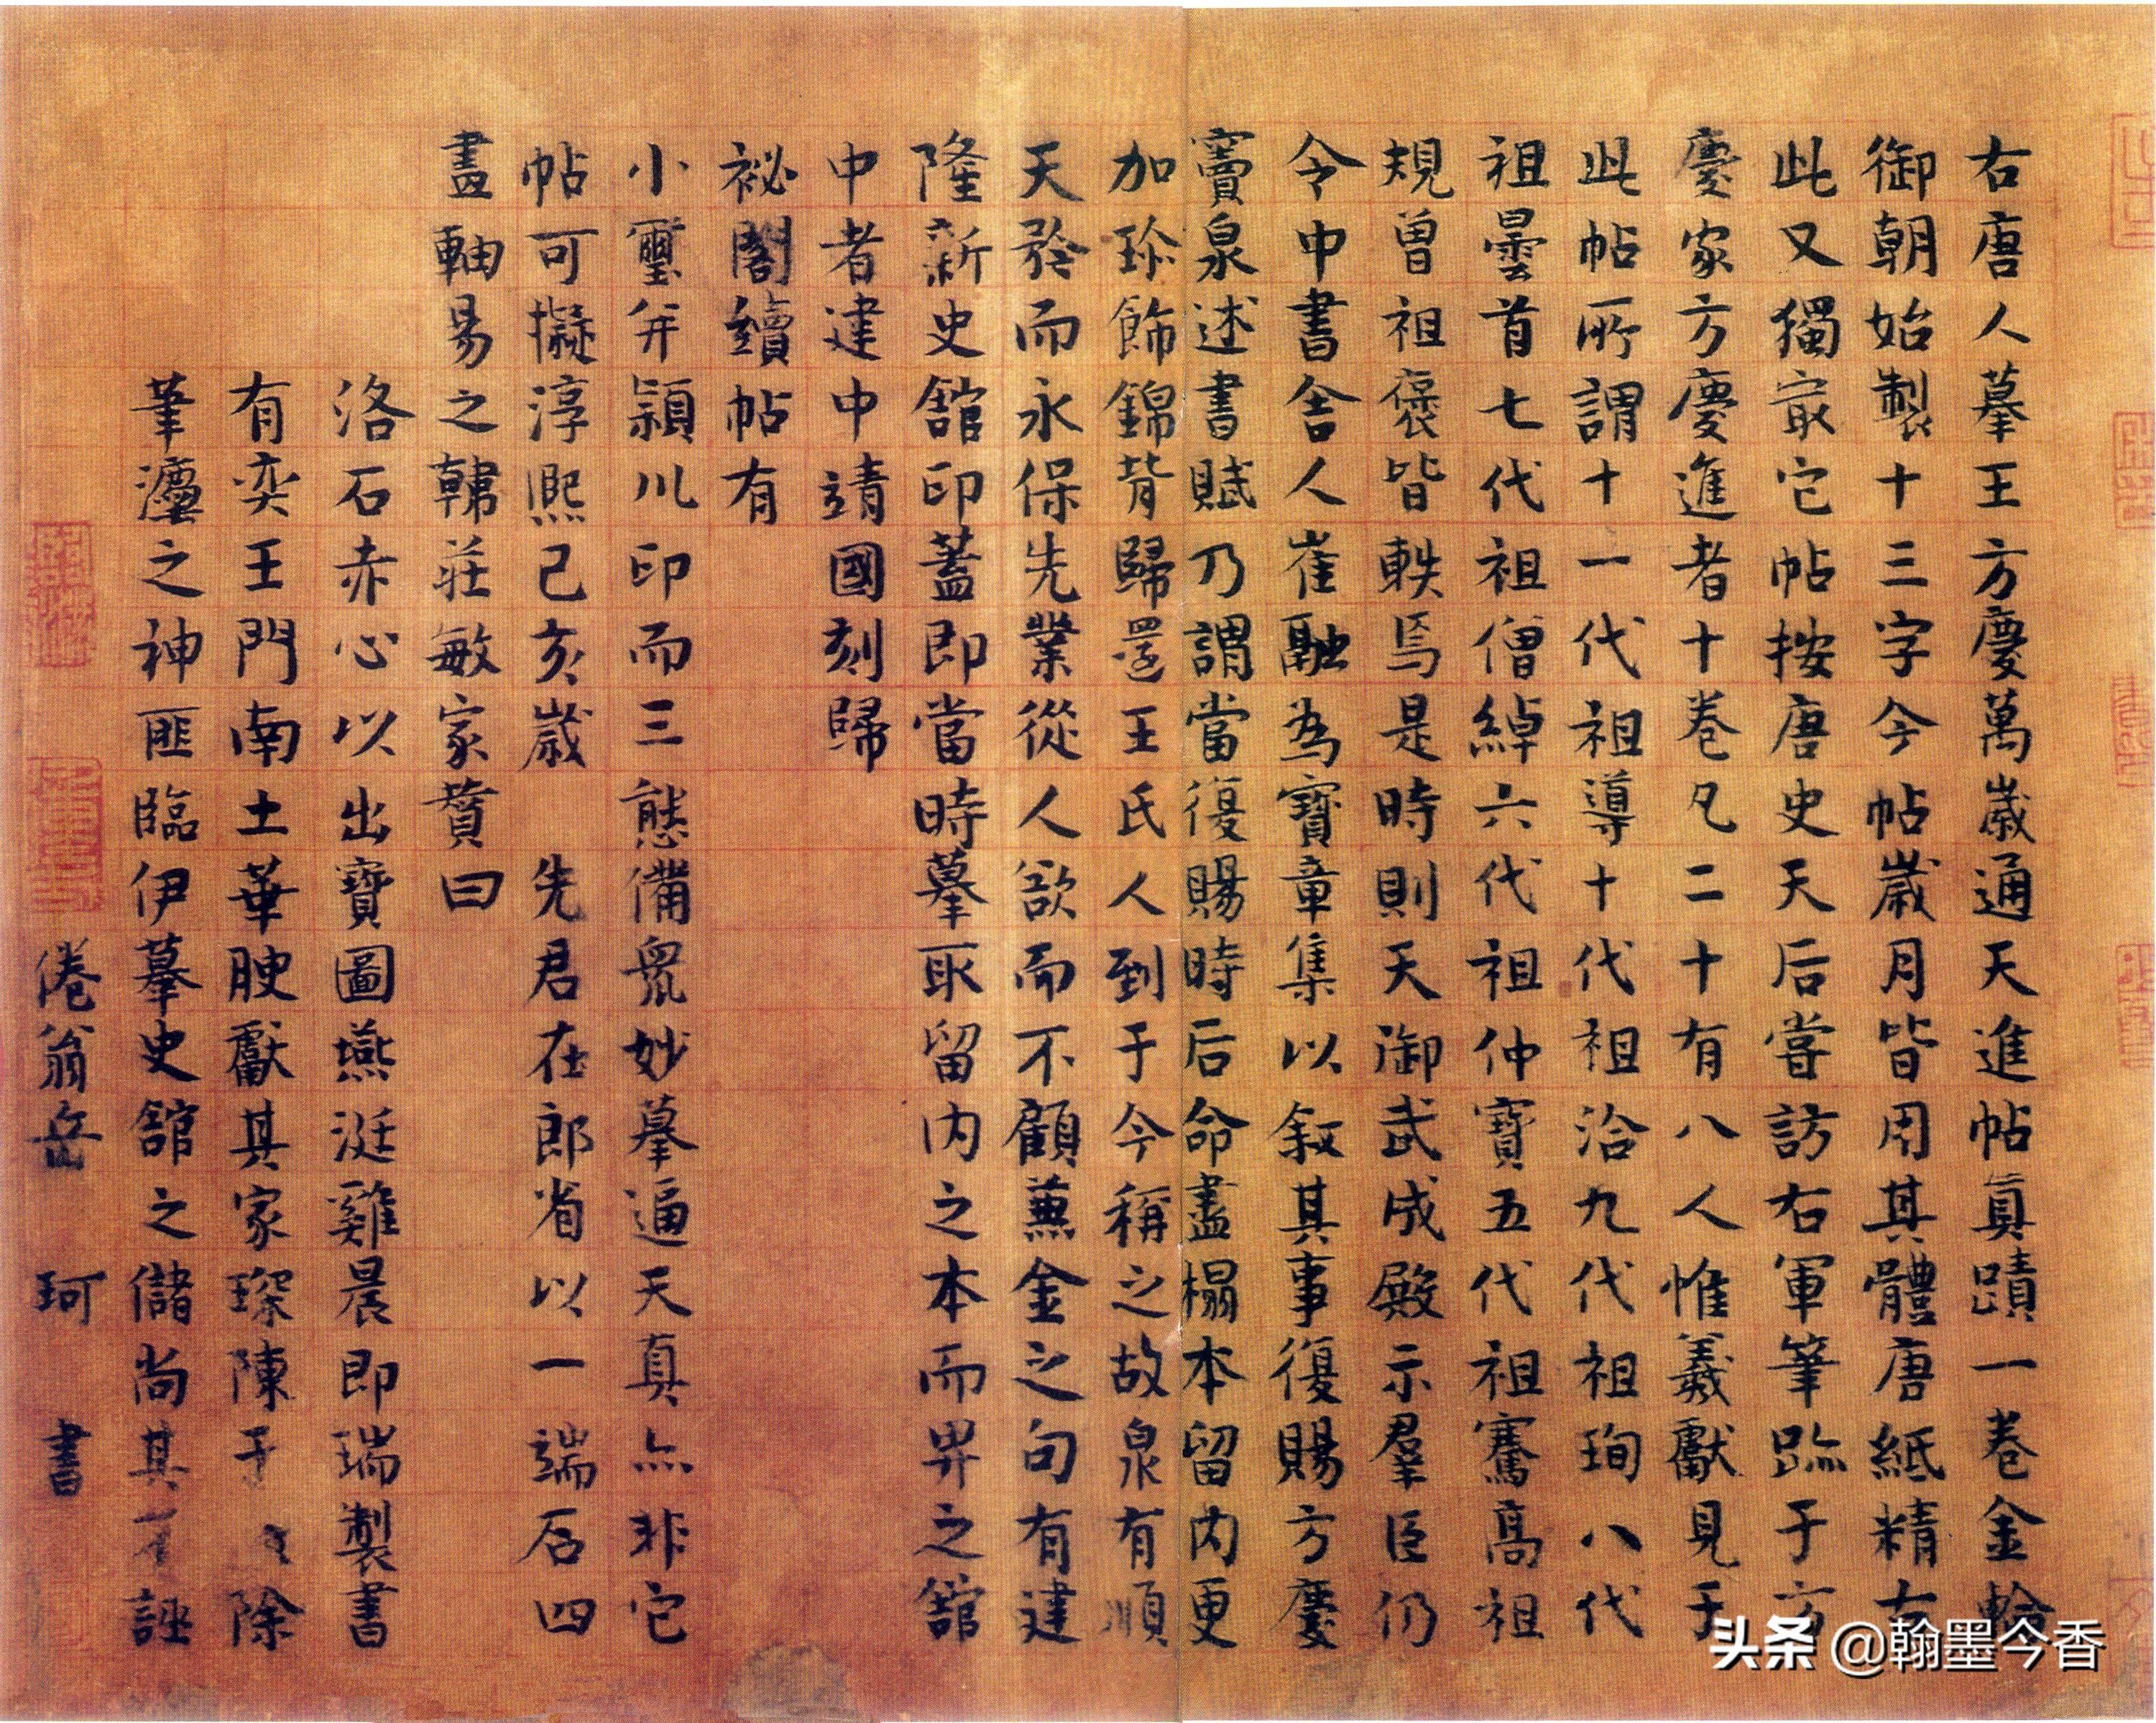 右唐人摹王方慶萬歲通天進帖真蹟一卷金輪
御朝始製十三字今帖歲月皆用其體唐紙精古
此又獨冣它帖按唐史天后嘗訪右軍筆跡于方
慶家方慶進者十卷凡二十有八人惟羲獻見于
此帖所謂十一代祖導十代祖洽九代祖珣八代
祖曇首七代祖僧綽六代祖仲寶五代祖騫高祖
規曾祖褒皆軼焉是時則天御武成殿示羣臣仍
令中書舍人崔融為寶章集以叙其事復賜方慶
竇泉述書賦乃謂當復賜時后命盡榻本留內更
加珍飾錦背歸還王氏人到于今稱之故泉有順
天矜而永保先業從人欲而不顧蒹金之句有建
隆新史舘印葢即當時摹取留內之本而畀之舘
中者建中靖國刻歸
祕閣續帖有
小璽并潁川印而三態備衆妙摹逼天真亦非它
帖可擬淳熙己亥歲 先君在郎省以一端石四
畫軸易之韓莊敏家贊曰
洛石赤心以出寶圖燕涎雞晨即瑞製書
有奕王門南土華腴獻其家琛陳于 除
筆灋之神匪臨伊摹史舘之儲尚其 誣
倦翁岳 珂 書
头条 @翰墨今香